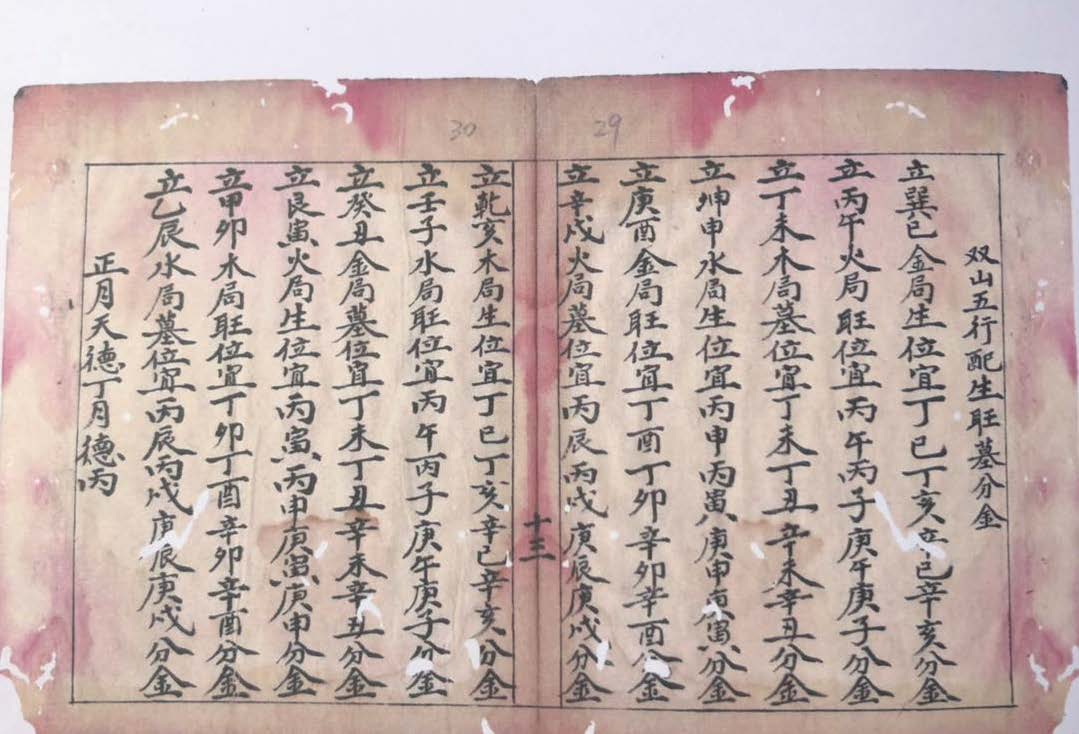 29
双山五行配生旺墓分金
立巽巳金局生位宜丁巳丁亥辛巳辛亥分金
立丙午火局旺位宜丙午丙子庚午庚子分金
立丁未木局墓位宜丁未丁丑辛未辛丑分金
立坤申水局生位宜丙申丙寅庚申庚寅分金
立庚酉金局旺位宜丁酉丁卯辛卯辛酉分金
立辛戌火局墓位宜丙辰丙戌庚辰庚戌分金
十三
30
立乾亥木局生位宜丁巳丁亥辛巳辛亥分金
立壬子水局旺位宜丙午丙子庚午庚子分金
立癸丑金局墓位宜丁未丁丑辛未辛丑分金
立艮寅火局生位宜丙寅丙申庚寅庚申分金
立甲卯木局旺位宜丁卯丁酉辛卯辛酉分金
立乙辰水局墓位宜丙辰丙戌庚辰庚戌分金
正月天德丁月德丙